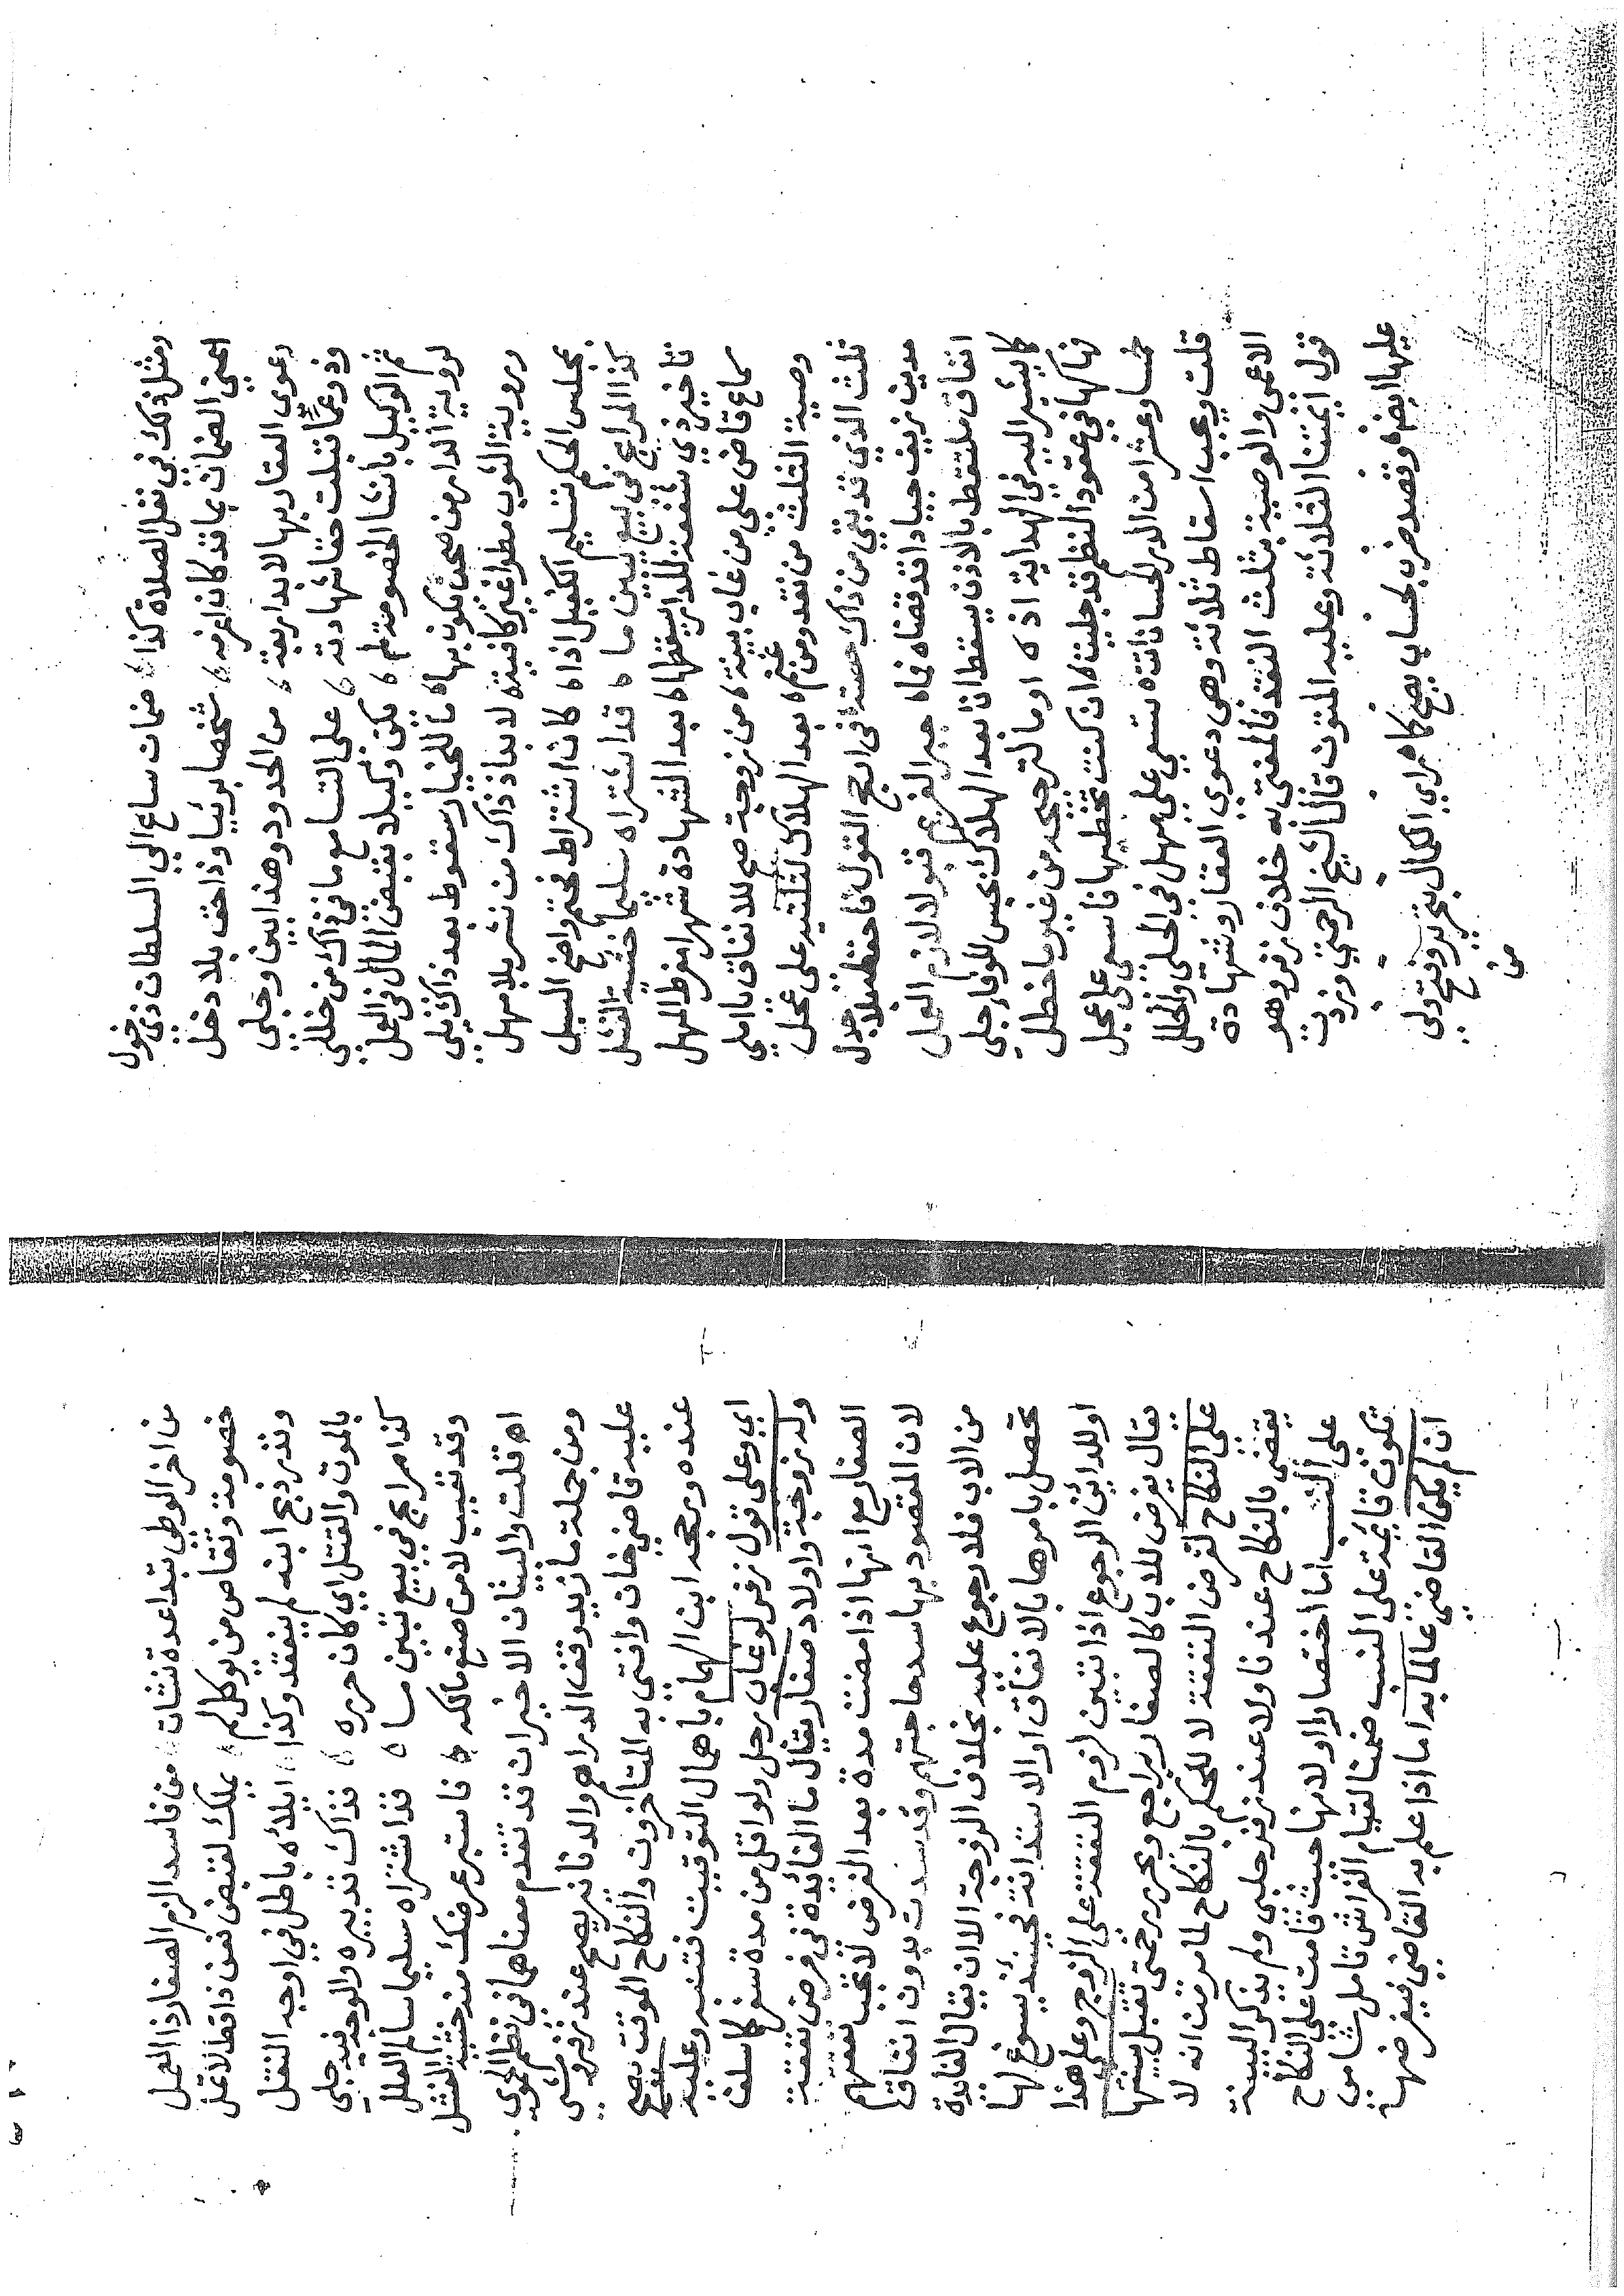 ومثل ذلك في نفل الصلاة كذا ضمان ساع الي السلطان ذي خول
اعني الضمان بما قد كان اغرمه شخصا بريئا وذا حق بلا دخل
دعوى العقار بها لابد اربعة من الحدود وهذا بين وجلي
وذو عمًّا قبلت حقا شهادته على التسامع ما في ذاك من خلل
ثم الوكيل بانشا الخصومة لم يكن وكيلا بقبض المال في العمل
لرؤية الدار من صحن تكون بها ما للخيار سقوط بعد ذاك يلي
ورؤية الثوب مطويا غير كافية لابد اذ ذاك من نشر بلا مهل
بمجلس الحكم تسليم الكفيل اذا كان اشتراط فحتم واضح السبل
كذا المرابح في بيع يبين ما قد اشتراه سليما خشية الفشل
تاخير ذي شفعة للدار يسقطها بعد الشهادة شهرا مفرط المهل
سماع قاض علي من غاب بينة من زوجة صح للانفاق يا املي
وصية الثلث من نقد ومن غنم بعد الهلاك لثلثيه على عجل
ثلث الذي قد بقي من ذاك حصته في ارجح القول فاحفظ بلا جدل
مدين زيف جيادا قد قضاه فما جبر الغريم قبولا لازم العمل
انفاق ملتقط بالاذن يسقط ان بعد الهلاك بحبس للوفاء جلي
كما يشير اليه في الهداية اذ اوما لترجيحه من غير ما خطل
فهاكها في عقود النظم قد جليت ان كنت تخطبها فاسعى على عجل
خمسا وعشرا من الدر الحسان اتت تسعى علي مهل في الحلي والحلل
قلت ويجب اسقاط ثلاثة وهي دعوي العقار وشهادة
الاعمى والوصية بثلث النقد فالمفتى به خلاف زفر وهو
قول ايمتنا الثلاثة وعليه المتون قال الشيخ الرحمتي وزدت
عليها ايضا وقصد ضرب لحساب يصح كما براي الكمال بتحرير وفتح ولي
من
من اخر الوطي تبدا عدة نشات من فاسد الزم الصغار ذا العمل
خصومة وتقاص من يوكل لم يملك لقبض نعن ذا قط لا تمل
ونذر ذبح ابنه لم ينعقد وكذا ايلائه باطل في اوجه النقل
بالموت والقتل اي كان حرره فذاك تدبيره والوجه فيه جلي
كذا مرابح في بيع تبين ما فذا اشتراه سليما سالم العلل
وقد تعيب لا من صنع مالكه فاستبر عرضك منه خشية الفشل
اه قلت والبيتان الاخيران قد تقدم معناهما في نظم الحموي
ومن جملة ما زيد وقف الدراهم والدنانير يصح عند زفر ومشى
عليه قاضي خان وافتي به المتاخرون والنكاح الموقت يصح
عنده ورجحه ابن الهمام باهمال التوقيت فتنبه وعليه
اي وعلى قول زفر لو غاب رجل ولو اقل من مدة سفر كما سلف
وله زوجة واولاد صغار يقال ما الفائدة في فرض نفقة
الصغار مع انها اذا مضت مدة بعد الفرض لا تجب نفقتهم
لان المقصود بها سد حاجتهم وقد سدت بدون انفاق
من الاب فلا رجوع عليه بخلاف الزوجة الا ان يقال الفائدة
تحصل بامرها بالانفاق او الاستدانة فحينئذ يسوغ لها
او للدائن الرجوع اذا تبين لزوم النفقة على الزوج وعلى هذا
يقال يفرض للاب كالصغار يراجع ويحرر رحمتى تقبل بينتها
على النكاح لفرض النفقة لا للحكم بالنكاح لما مر من انه لا
يقضي بالنكاح عندنا ولا عند زفر حلبي ولم يذكر البينة
على النسب اما اختصارا او لانها حيث قامت على النكاح
تكون قايمة على النسب ضمنا لقيام الفراش تامل شامي
ان لم يكن القاضي عالما به اما اذا علم به القاضي فيفرضها